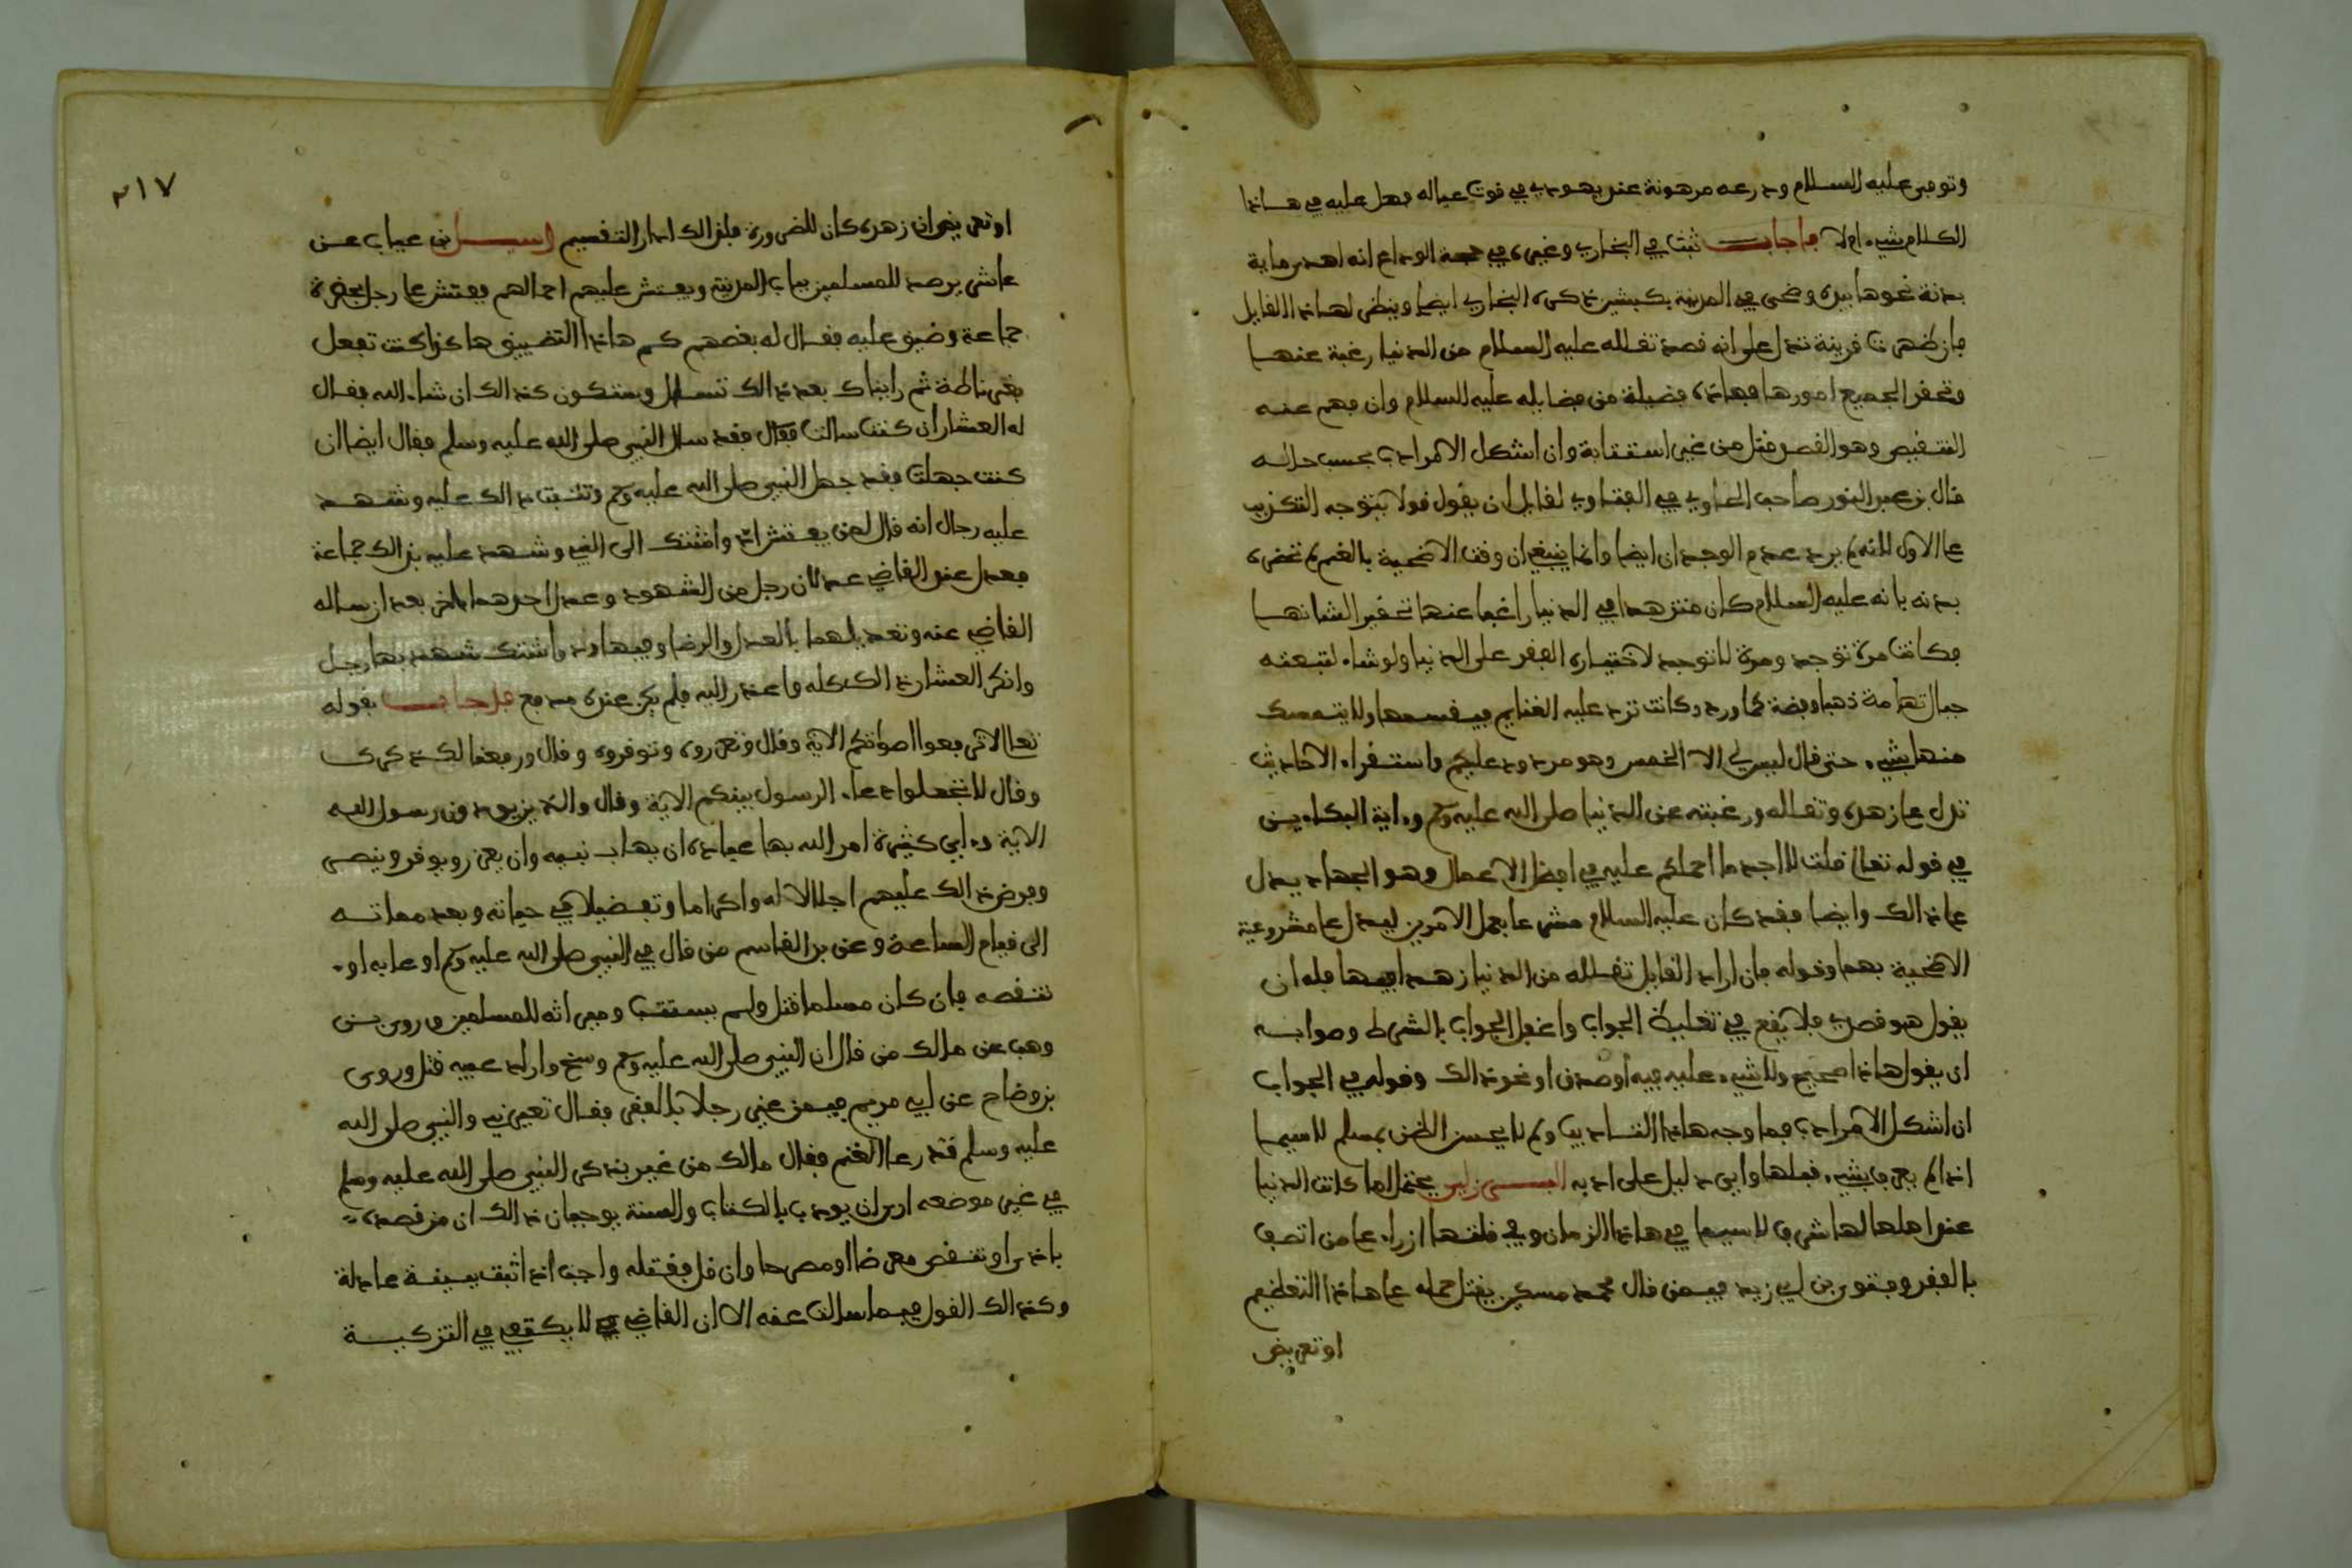 وتوفي عليه السلام ودرعه مرهونة عند يهودي في قوت عياله فهل عليه في هاذا
الكلام شيء ام لا فاجاب ثبت في البخاري وغيره في حجة الوداع انه اهدى ماية
بدنة نحرها بيده وضحى في المدينة بكبشين ذكره البخاري ايضا وينظر لهاذا القايل
فان ظهرت قرينة تدل على انه قصد تقلله عليه السلام من الدنيا رغبة عنها
وتحقر الجميع امورها فهاذه فضيلة من فضايله عليه السلام وان فهم عنه
التنقيص وهو القصد قتل من غير استتابة وان اشكل الامر ادب بحسب حاله
قال بن عبد النور صاحب الحاوي في الفتاوي لقايل ان يقول قولا يتوجه التكذيب
على الاول لانه لم يرد عدم الوجدان ايضا وانما ينبغي ان وقت الاضحية بالغنم لم تحضره
بدنه بانه عليه السلام كان متزهدا في الدنيا راغبا عنها تحقير الشانها
فكانت مرة توجد ومرة لا توجد لاختياره الفقر على الدنيا ولو شاء لتبعته
جبال تهامة ذهبا وفضة كما ورد وكانت ترد عليه الغنايم فيقسمها ولا يتمسك
منها بشيء حتى قال ليس لي الا الخمس وهو مردود عليكم واستقراء الاحاديث
تدل على زهده وتقلله ورغبته عن الدنيا صلى الله عليه وسلم واية البكايين
في قوله تعالى قلت لا اجد ما احملكم عليه في افضل الاعمال وهو الجهاد يدل
على ذالك وايضا فقد كان عليه السلام مشرعا بعمل الامرين ليدل على مشروعية
الاضحية بهما وقوله فان اراد القايل تقلله من الدنيا زهدا فيها فله ان
يقول هو قصدي فلا يقع في تغليظ الجواب واغفل الجواب بالشرط وصوابه
ان يقول هاذا صحيح ولا شيء عليه فيه او صدق او نحو ذالك وقوله في الجواب
ان اشكل الامر ادب فما وجه هاذا التاديب ولم لا يحسن الظن بمسلم لا سيما
اذا لم يعرف بشيء قبلها واي دليل على ادبه البرزلي يحتمل لما كانت الدنيا
عند اهلها لها شرف لا سيما في هاذا الزمان وفي قلتها ازراء على من اتصف
بالفقر وفتوى بن ابي زيد فيمن قال محمد مسكين يقتل حمله على هاذا التعظيم
او تعريض
٢١٧
او تعريض ان زهده كان للضرورة فلذالك اشار التقسيم وسئل بن عتاب عن
عاشر يرصد للمسلمين بباب المدينة ويفتش عليهم احمالهم ففتش على رجل بحضرة
جماعة وضيق عليه فقال له بعضهم كم هاذا التضييق هاكذا كنت تفعل
بغرناطة ثم رايناك بعد ذالك تسال وستكون كذالك ان شاء الله فقال
له العشار ان كنت سالت فقال فقد سال النبي صلى الله عليه وسلم فقال ايضا ان
كنت جهلت فقد جهل النبي صلى الله عليه وسلم وثبت ذالك عليه وشهد
عليه رجال انه قال لمن يفتش اد واشتك الى النبي وشهد عليه بذالك جماعة
فعدل عند القاضي عدلان رجل من الشهود وعدل احدهما الاخر بعد ان ساله
القاضي عنه وتعديلهما بالعدل والرضا وفيها اد واشتك شهد بها رجل
وانكر العشار ذالك كله واعذر اليه فلم يكن عنده مدفع فاجاب بقوله
تعالى لا ترفعوا اصواتكم الاية وقال وتعزروه وتوقروه وقال ورفعنا لك ذكرك
وقال لا تجعلوا دعاء الرسول بينكم الاية وقال والذين يوذون رسول الله
الاية واي كثيرة امر الله بها عباده ان يهاب نبيه وان يعزر ويوقر وينصر
وفرض ذالك عليهم اجلالا له واكراما وتفضيلا في حياته وبعد مماته
الى قيام الساعة وعن بن القاسم من قال في النبي صلى الله عليه وسلم او عابه او
تنقصه فان كان مسلما قتل ولم يستتب وميراثه للمسلمين وروى بن
وهب عن مالك من قال ان النبي صلى الله عليه وسلم وسخ واراد عيبه قتل وروى
بن وضاح عن ابي مريم فيمن عير رجلا بالفقر فقال تعيرني والنبي صلى الله
عليه وسلم قد رعا الغنم فقال مالك من غير بذكر النبي صلى الله عليه وسلم
في غير موضعه ارى ان يودب بالكتاب والسنة يوجبان ذالك ان من قصده
باذى او تنقص معرضا او مصرحا وان قل فقتله واجب اذا ثبت ببينة عادلة
وكذالك القول فيما سالت عنه الا ان القاضي لا يكتفي في التزكية